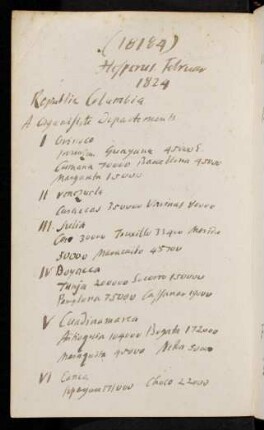 (18184)
Hesperus Februar
1824
Republic Columbia
A Departements
I Orinoco
Guayana 45000
Cumana 70000 Barcellona 45000
Margarita 15000
II Venezuela
Caraccas 350000 Varinas 80000
III. Sulia
Coro 30000 Truxillo 33400 Merida
50000 Maracaibo 48700
IV Boyacca
Tunja 200000 Socorro 150000
Pamplona 75000 Cassanare 19000
V Cundinamarca
Antioquia 104000 Bogota 172000
Mariquita 45000 Neiva 50000
VI Cauca
Popayan 171000 Choco 22000